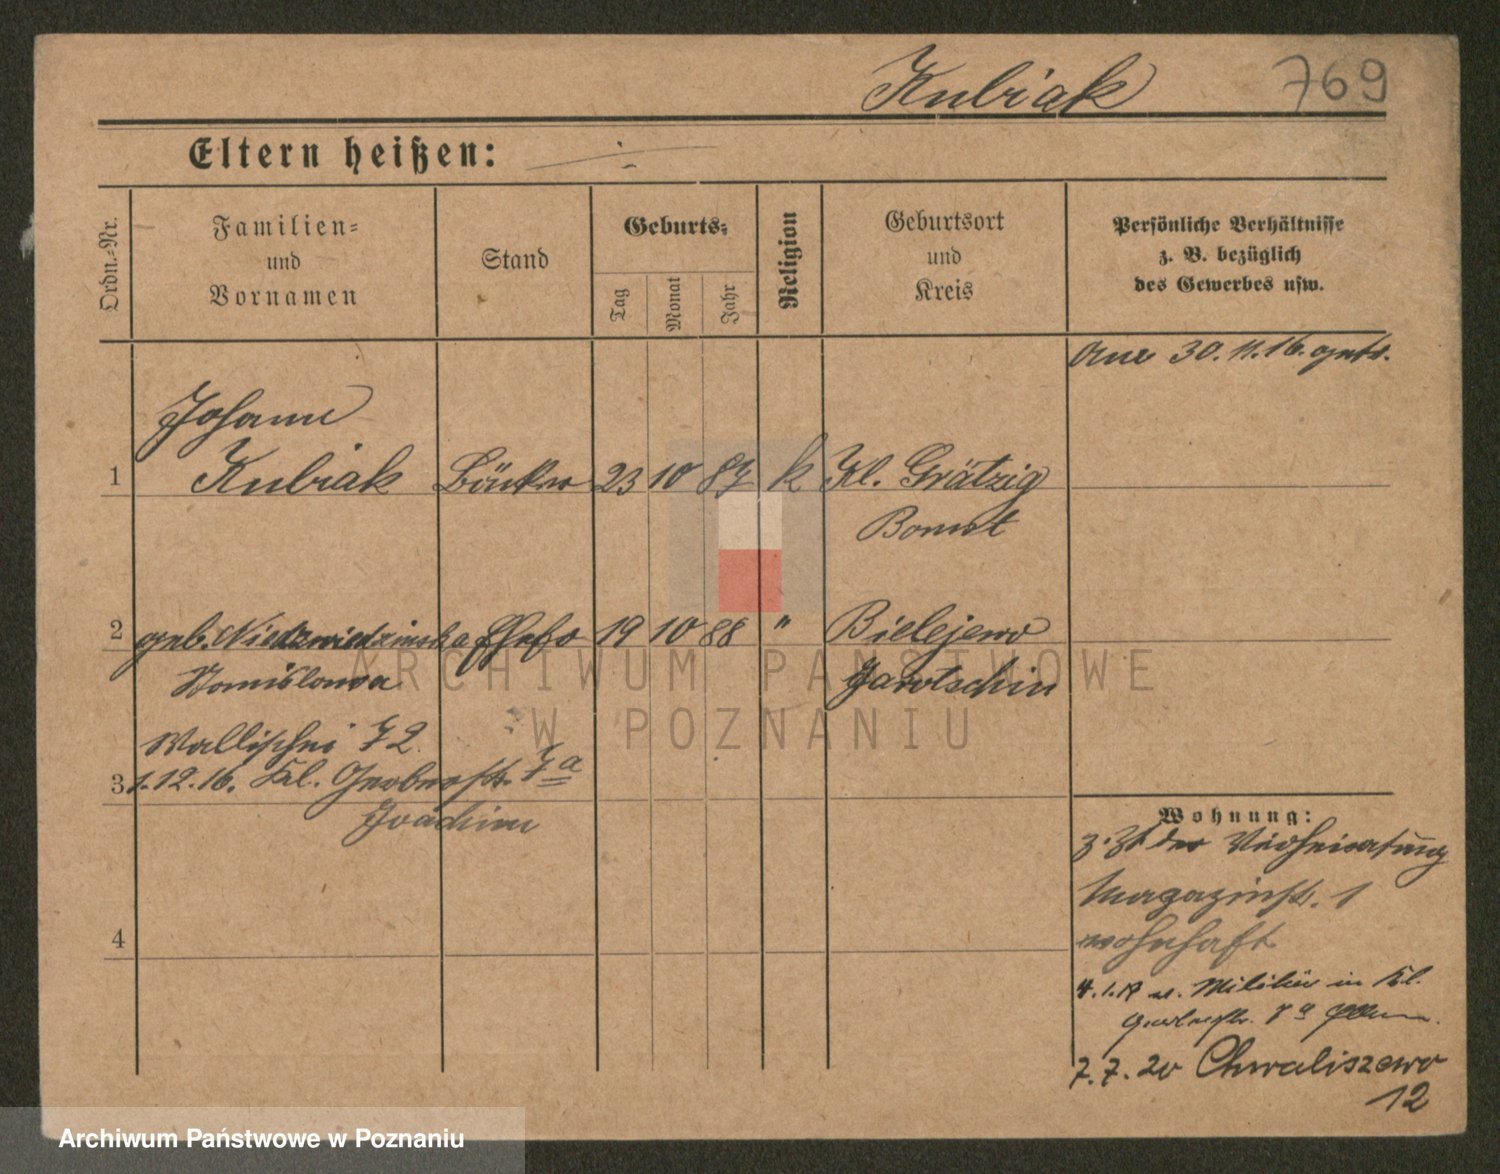 Kubiak 769
Eltern heißen:
Ordn.-Nr.
Familien-
und
Vornamen
Stand
Geburts-
Tag
Monat
Jahr
Religion
Geburtsort
und
Kreis
Persönliche Verhältnisse
z. B. bezüglich
des Gewerbes usw.
30. 11. 16.
Johann
1 Kubiak 23 10 87 k Kl. Grätzig
Bomst
2 geb. Niedzwiedzinska Ehefr 19 10 88 " Bielejewo
Stanislawa Jarotschin
Wallischei 72
3 1.12.16. Kl. Gerberstr. 7a
Joachim
Wohnung:
z. Zt der Verheiratung
Magazinstr. 1
wohnhaft
4
Militär in Kl.
Gerberstr. 7a
7. 7. 20 Chwaliszewo
12
ARCHIWUM PAŃSTWOWE
W POZNANIU
Archiwum Państwowe w Poznaniu